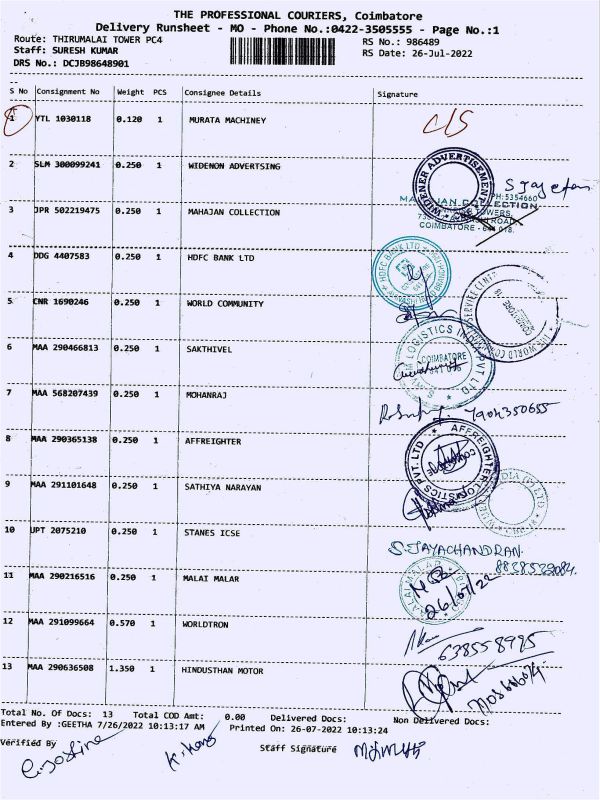 THE PROFESSIONAL COURIERS, Coimbatore
Delivery Runsheet - MO - Phone No.:0422-3505555 - Page No.:1
Route: THIRUMALAI TOWER PC4
RS No.: 986489
Staff: SURESH KUMAR
RS Date: 26-Jul-2022
DRS No.: DCJB98648901
S No Consignment No Weight PCS Consignee Details Signature
1 YTL 1030118 0.120 1 MURATA MACHINEY
C/S
2 SLM 300099241 0.250 1 WIDENON ADVERTSING
WIDENER ADVERTISEMENT
S Jayetan
PH: 5354660
3 JPR 502219475 0.250 1 MAHAJAN COLLECTION
COLLECTION
TOWERS,
COIMBATORE
4 DDG 4407583 0.250 1 HDFC BANK LTD
HDFC BANK LTD
5 CNR 1690246 0.250 1 WORLD COMMUNITY
THE WORLD COMMUNITY SERVICE CENTRE
COIMBATORE
6 MAA 290466813 0.250 1 SAKTHIVEL
LOGISTICS INDIA PVT LTD
COIMBATORE
7 MAA 568207439 0.250 1 MOHANRAJ
7904350655
8 MAA 290365138 0.250 1 AFFREIGHTER
AFFREIGHTER LOGISTICS PVT. LTD
9 MAA 291101648 0.250 1 SATHIYA NARAYAN
10 UPT 2075210 0.250 1 STANES ICSE
S. JAYACHANDRAN
8838529084.
11 MAA 290216516 0.250 1 MALAI MALAR
MALAI MALAR
26/07/22
12 MAA 291099664 0.570 1 WORLDTRON
638558995
13 MAA 290636508 1.350 1 HINDUSTHAN MOTOR
Total No. Of Docs: 13 Total COD Amt: 0.00 Delivered Docs: Non Delivered Docs:
Entered By :GEETHA 7/26/2022 10:13:17 AM Printed On: 26-07-2022 10:13:24
Verified By Staff Signature